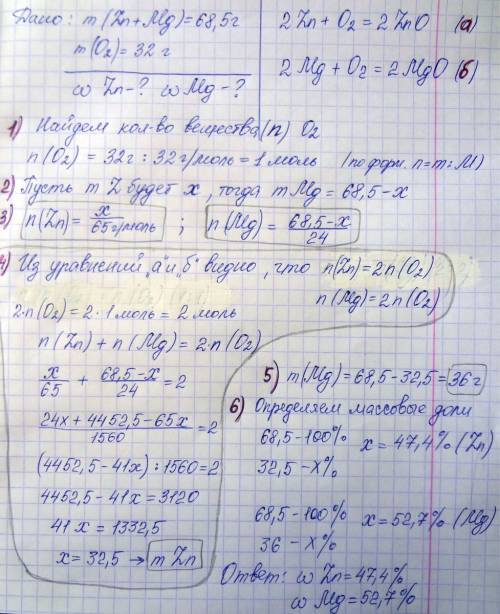 Дано: m(Zn+Mg)=68,5г
m(O₂)=32 г
ω Zn-? ω Mg-?
2Zn+O₂=2ZnO (а)
2Mg+O₂=2MgO (б)
1) Найдем кол-во вещества(n) O₂
n(O₂) = 32г : 32г/моль = 1 моль /по форм. n=m:M)
2) Пусть m Z будет x, тогда mMg = 68,5-x
3) n(Zn)= x/65г/моль ; n(Mg)= 68,5-x/24
4) Из уравнений „а" и „б" видно, что n(Zn)=2n(O₂)
n(Mg)=2n(O₂)
2·n(O₂)=2·1моль=2 моль
n(Zn)+n(Mg)=2·n(O₂)
x/65 + 68,5-x/24 =2
24x+4452,5-65x/1560 =2
(4452,5-41x):1560=2
4452,5-41x=3120
41x=1332,5
x=32,5 → m Zn
5) m(Mg)=68,5-32,5=36г
6) Определяем массовые доли
68,5-100% x=47,4% (Zn)
32,5-X%
68,5-100% x=52,7% (Mg)
36-X%
Ответ: ω Zn=47,4%
ω Mg=52,7%